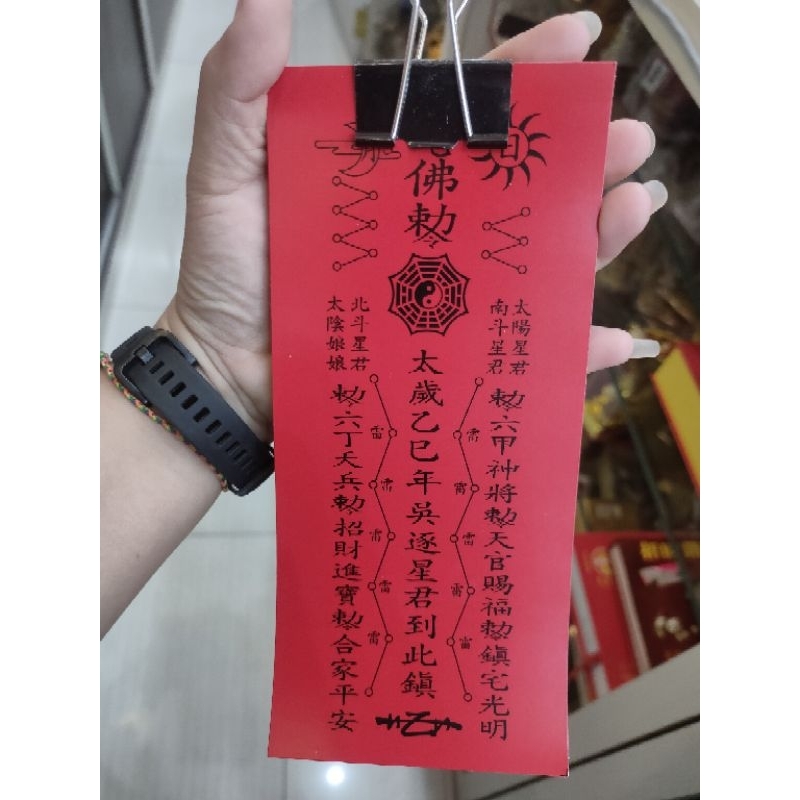 日
太陽星君
南斗星君
勅令六甲神將勅令天官賜福勅令鎮宅光明
雷
雷
雷
雷
雷
佛勅令
太歲乙巳年吳逐星君到此鎮
雷
雷
雷
雷
雷
北斗星君
太陰娘娘
勅令六丁天兵勅令招財進寶勅令合家平安